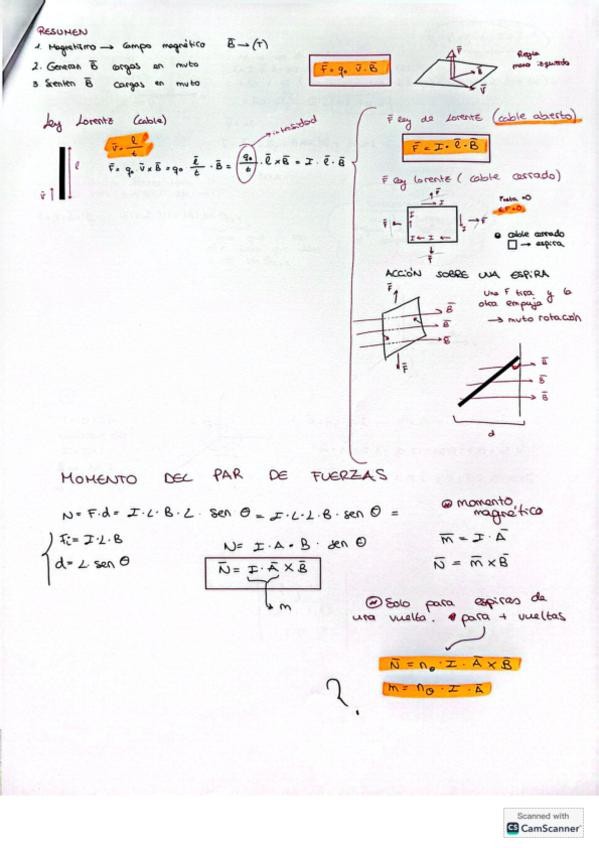 RESUMEN
1. Magnetismo → campo magnético B̄ → (T)
2. Generan B̄ cargas en mvto
3 Sienten B̄ cargas en mvto
F̄ = q₀ v̄ · B̄
F̄
B̄
V̄
Regla
mano izquierda
Ley Lorentz (cable)
v̄ = l̄/t
l
v̄ ↑
F̄ = q₀ · v̄ × B̄ = q₀ · l̄/t · B̄ = q₀/t · l̄ × B̄ = I · l̄ · B̄
intensidad
F̄ ley de Lorentz (cable abierto)
F̄ = I · l̄ · B̄
F̄ ley Lorentz (cable cerrado)
F̄
I
F̄
I
F̄
I ← I
F̄
ΣF=0
cable cerrado
→ espira
ACCIÓN SOBRE UNA ESPIRA
F̄
B̄
B̄
B̄
F̄
una F tira y la
otra empuja
→ mvto rotación
B̄
B̄
B̄
d
MOMENTO DEL PAR DE FUERZAS
N = F · d = I · L · B · L · sen θ = I · L · L · B · sen θ =
F̄ = I · L · B
d = L · sen θ
N = I · A · B · sen θ
N̄ = I · Ā × B̄
m
momento
magnético
m̄ = I · Ā
N̄ = m̄ × B̄
Solo para espiras de
una vuelta. para + vueltas
N̄ = n₀ · I · Ā × B̄
m = n₀ · I · Ā
?
Scanned with
CS CamScanner